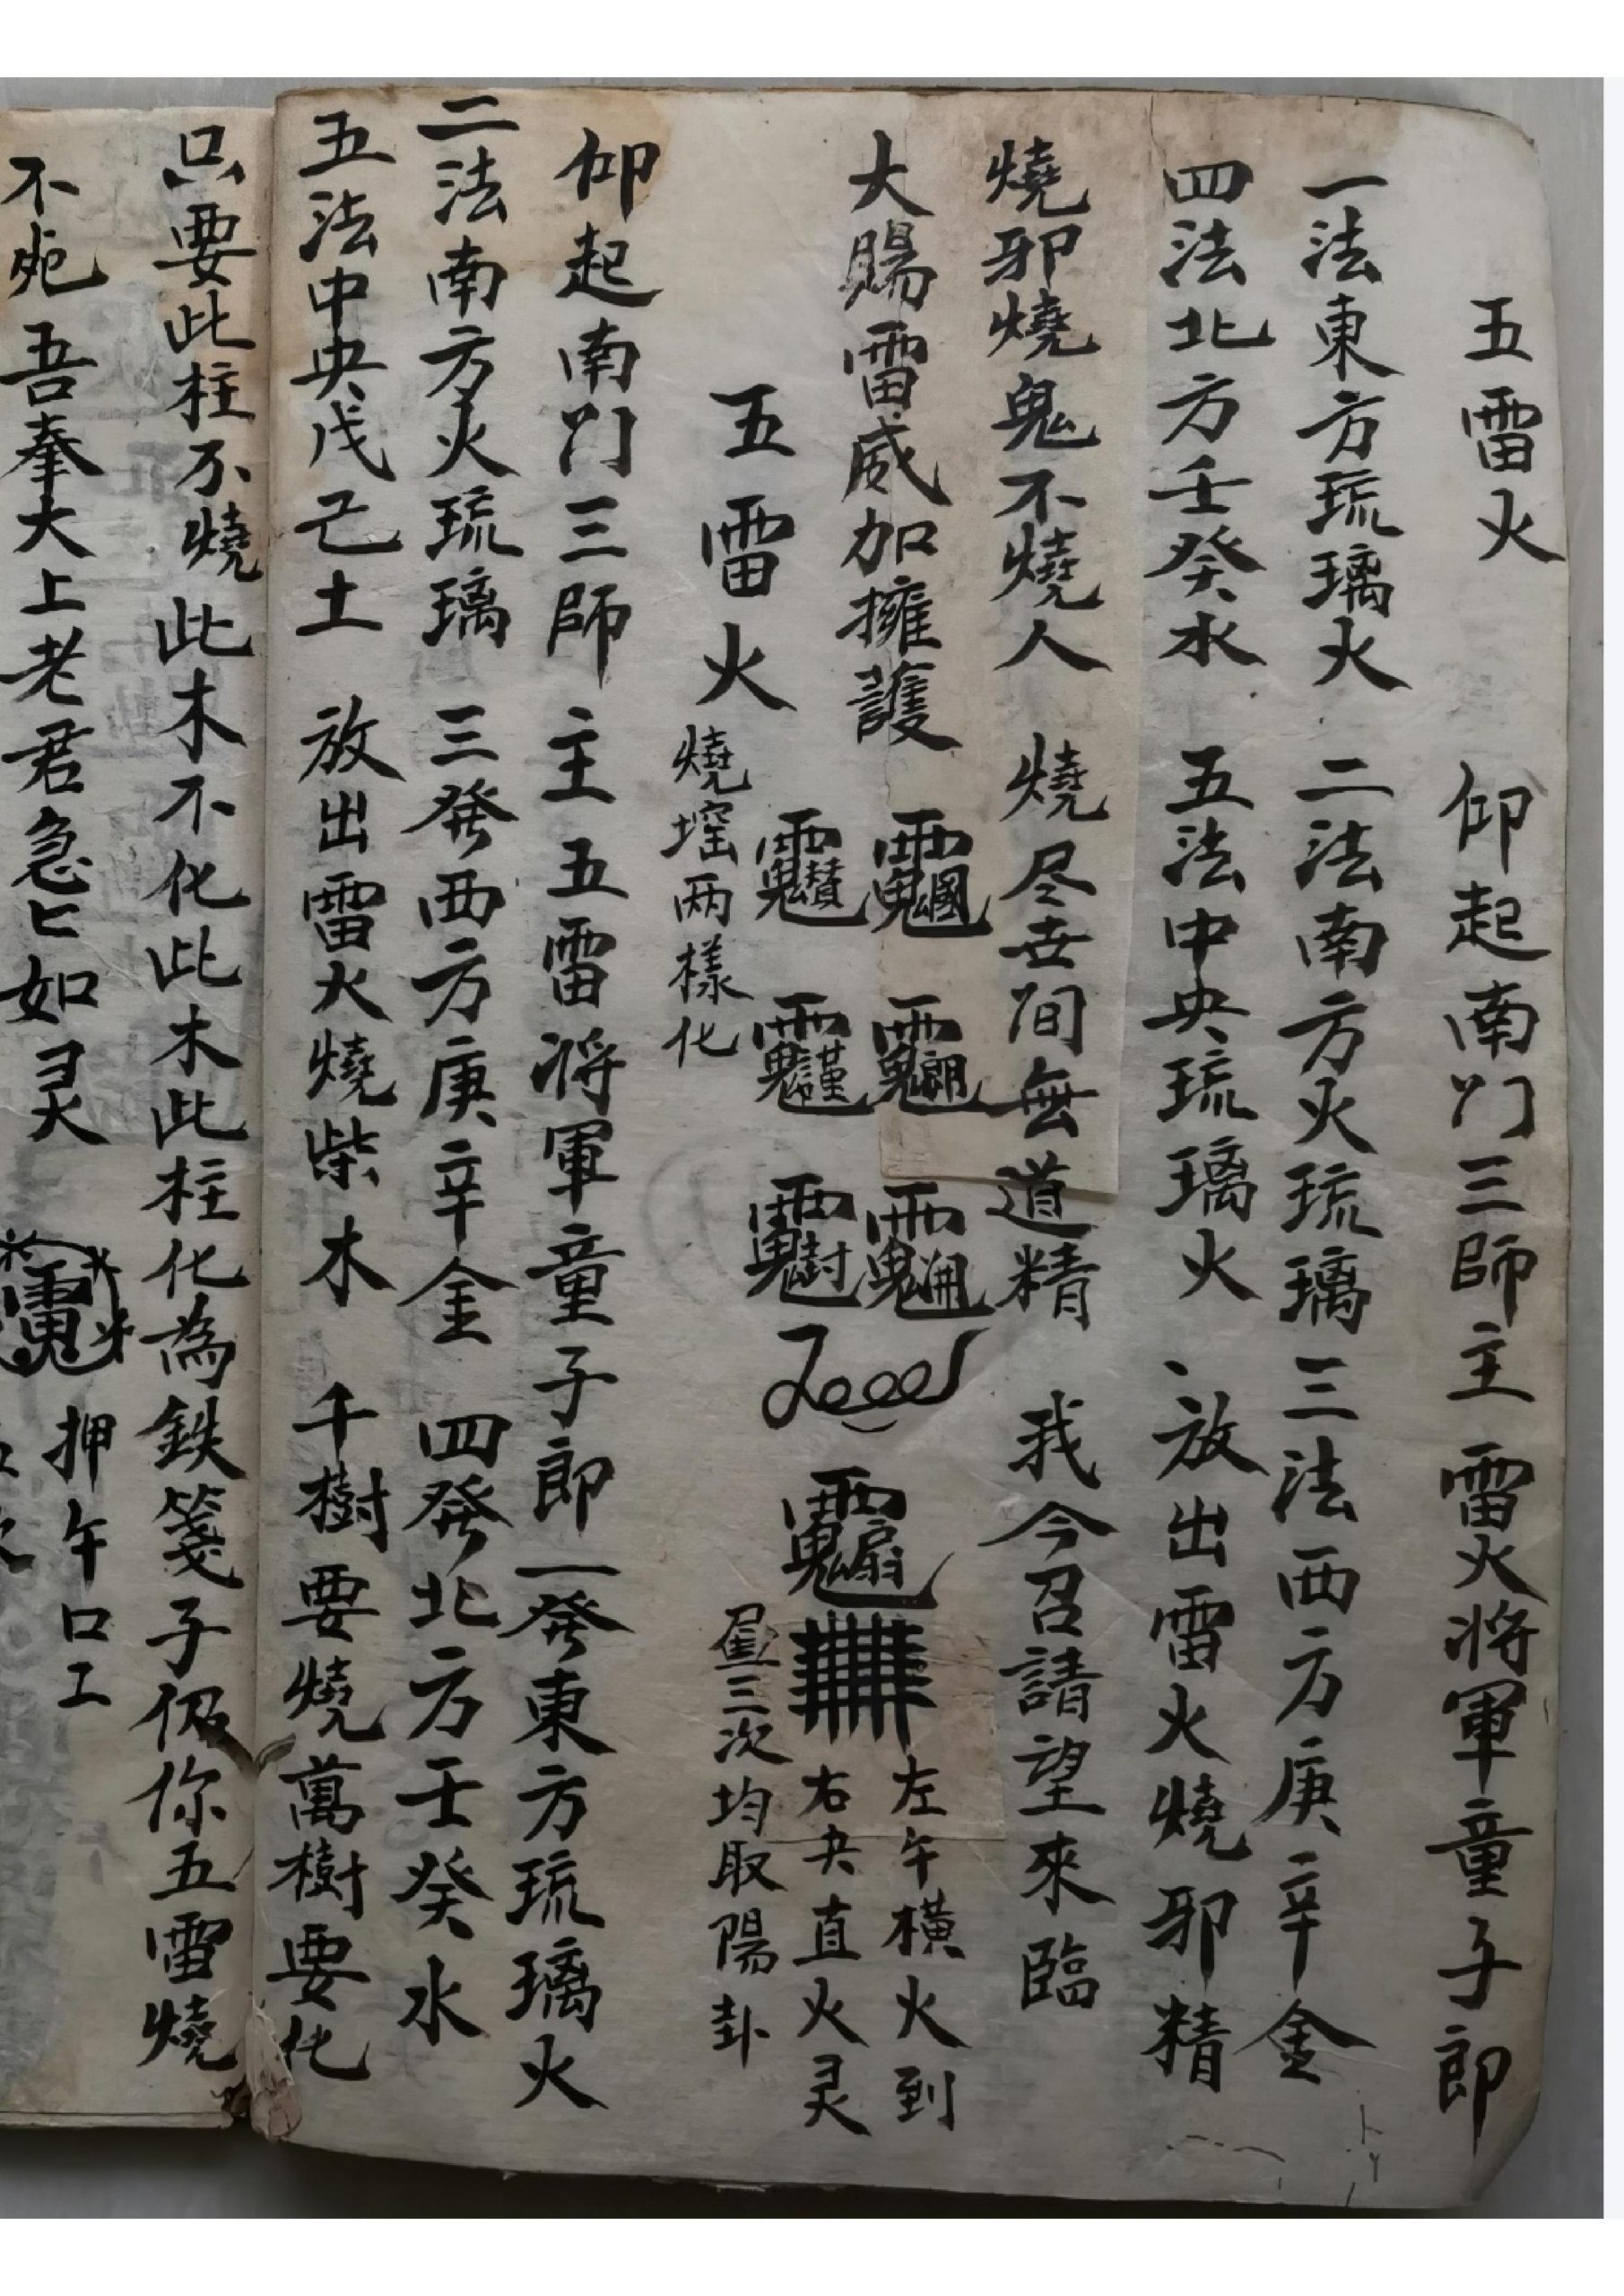 五雷火 仰起南门三師主 雷火将軍童子郎
一法東方琉璃火 二法南方火琉璃 三法西方庚辛金
四法北方壬癸水 五法中央琉璃火 、放出雷火燒邪精
燒邪燒鬼不燒人 燒尽世间無道精 我今召請望來臨
大賜雷威加擁護
左午横火到
右夬直火灵
三次均取陽卦
五雷火
燒窑两様化
仰起南门三師主 五雷将軍童子郎 一發東方琉璃火
二法南方火琉璃 三發西方庚辛金 四發北方壬癸水
五法中央戊己土 放出雷火燒柴木 千樹要燒萬樹要化
只要此柱不燒此木不化此木此柱化為鉄箋子伋你五雷燒
不 吾奉大上老君急匕如灵
押午口工